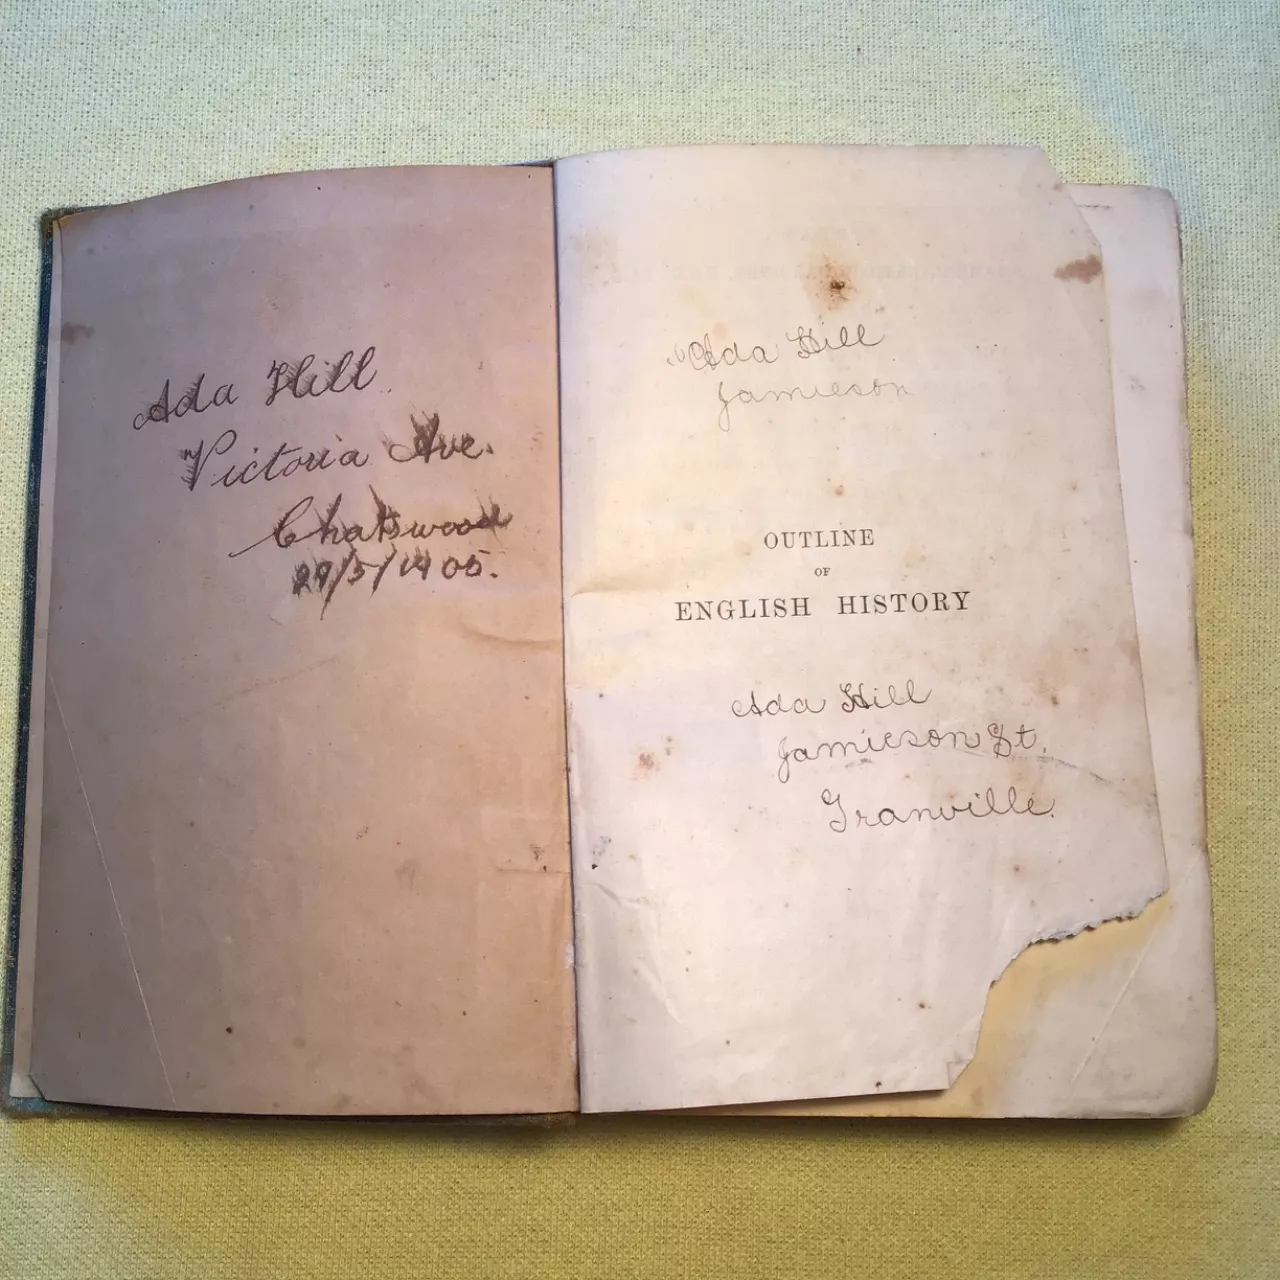 Ada Hill
Victoria Ave.
Chatswood
29/5/1905.
Ada Hill
Jamieson
OUTLINE
OF
ENGLISH HISTORY
Ada Hill
Jamieson St.
Granville.